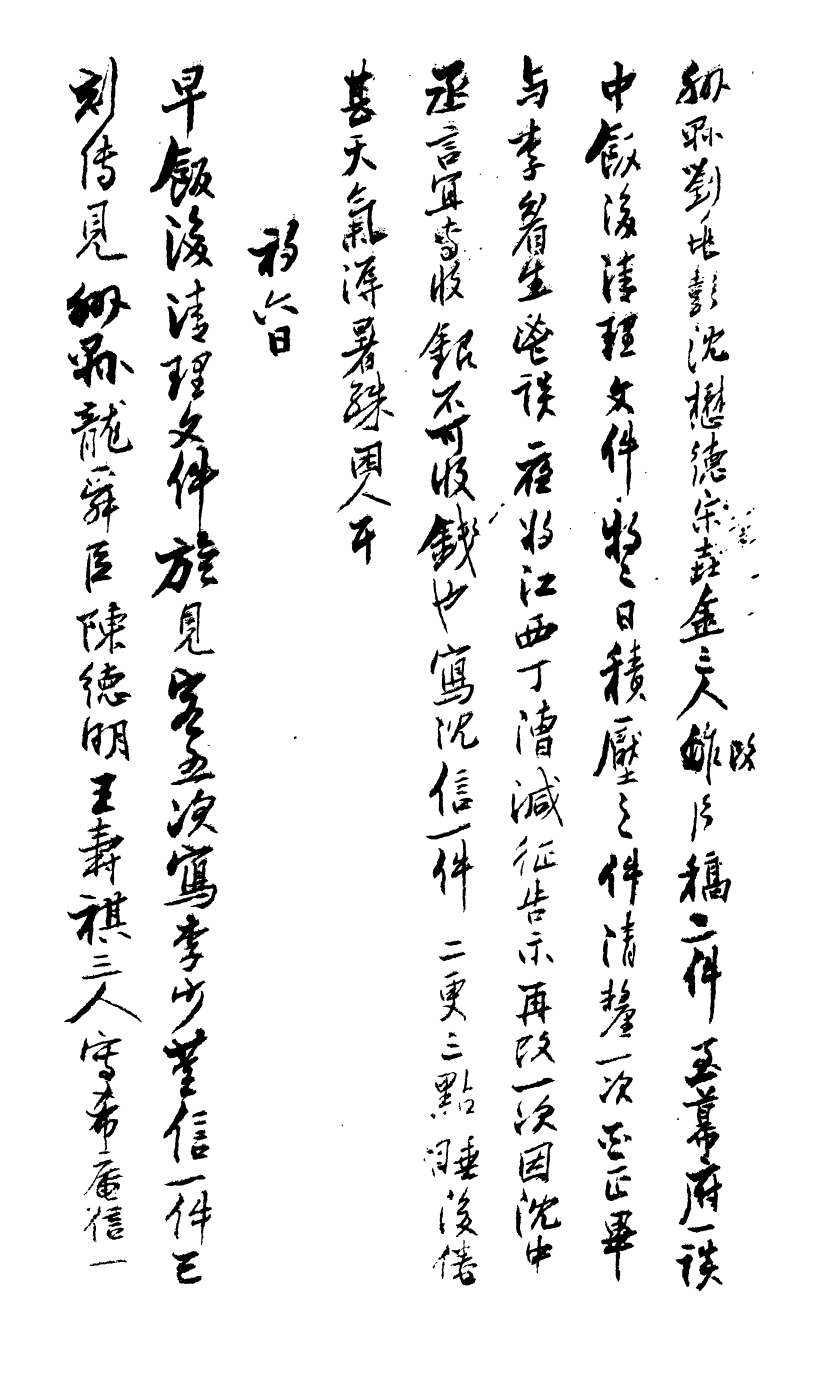 州縣劉兆彭沈懋德宋垚金三人改片稿二件至幕府一談
中飯後清理文件將二日積壓之件清釐一次酉正畢
与李眉生鬯談旋將江西丁漕減征告示再改一次因沈中
丞言宜專收銀不可收錢也寫沈信一件二更三點睡後倦
甚天氣溽暑殊困人耳
初六日
早飯後清理文件旋見客五次寫李少荃信一件巳
刻傳見州縣龍舜臣陳德明王壽祺三人寫希庵信一